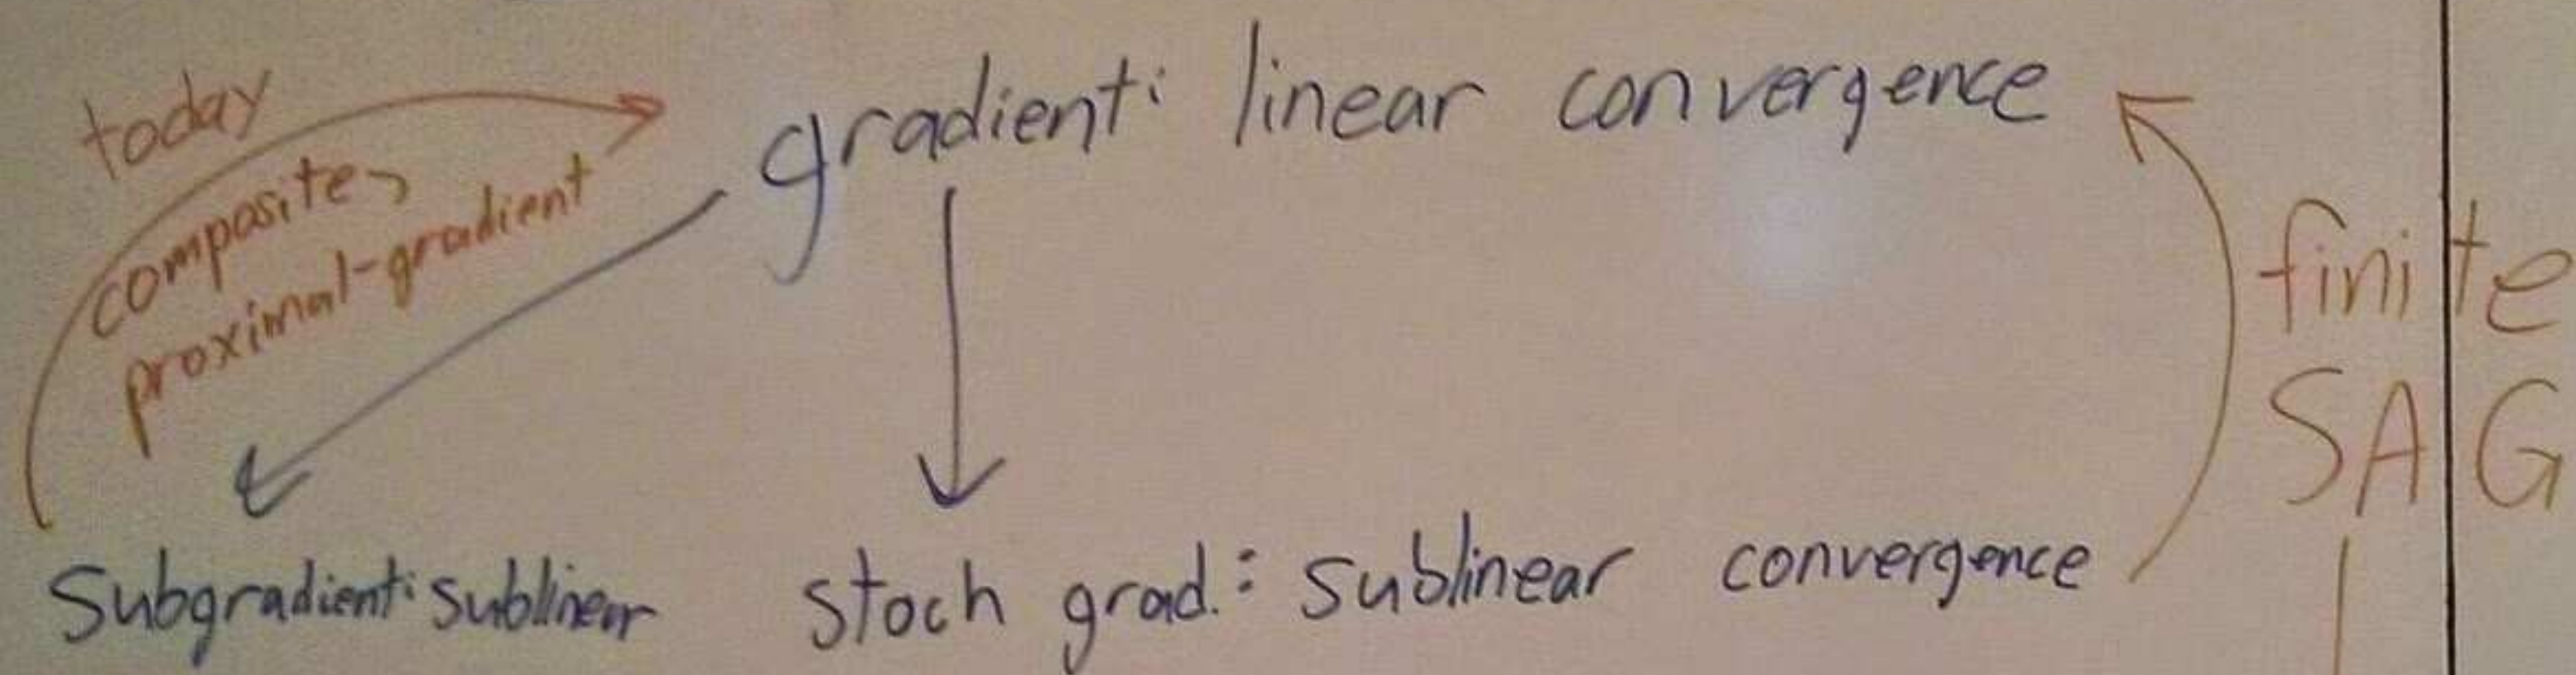 today
composite,
proximal-gradient
gradient: linear convergence
finite
SAG
Subgradient: sublinear
stoch grad.: sublinear convergence